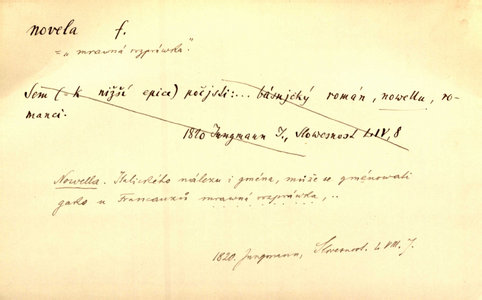 novela f.
= „mravná rozpráwka".
Sem (= k nižší epice) počjsti:... básnjcký román, nowellu, ro-
manci.
1820 Jungmann J., Slowesnost LIV, 8
Nowella. Italického nálezu i gména, může se gmenowati
gako u Francauzů mrawná rozpráwka, ..
1820. Jungmann, Slovesnost. L VIII. J.